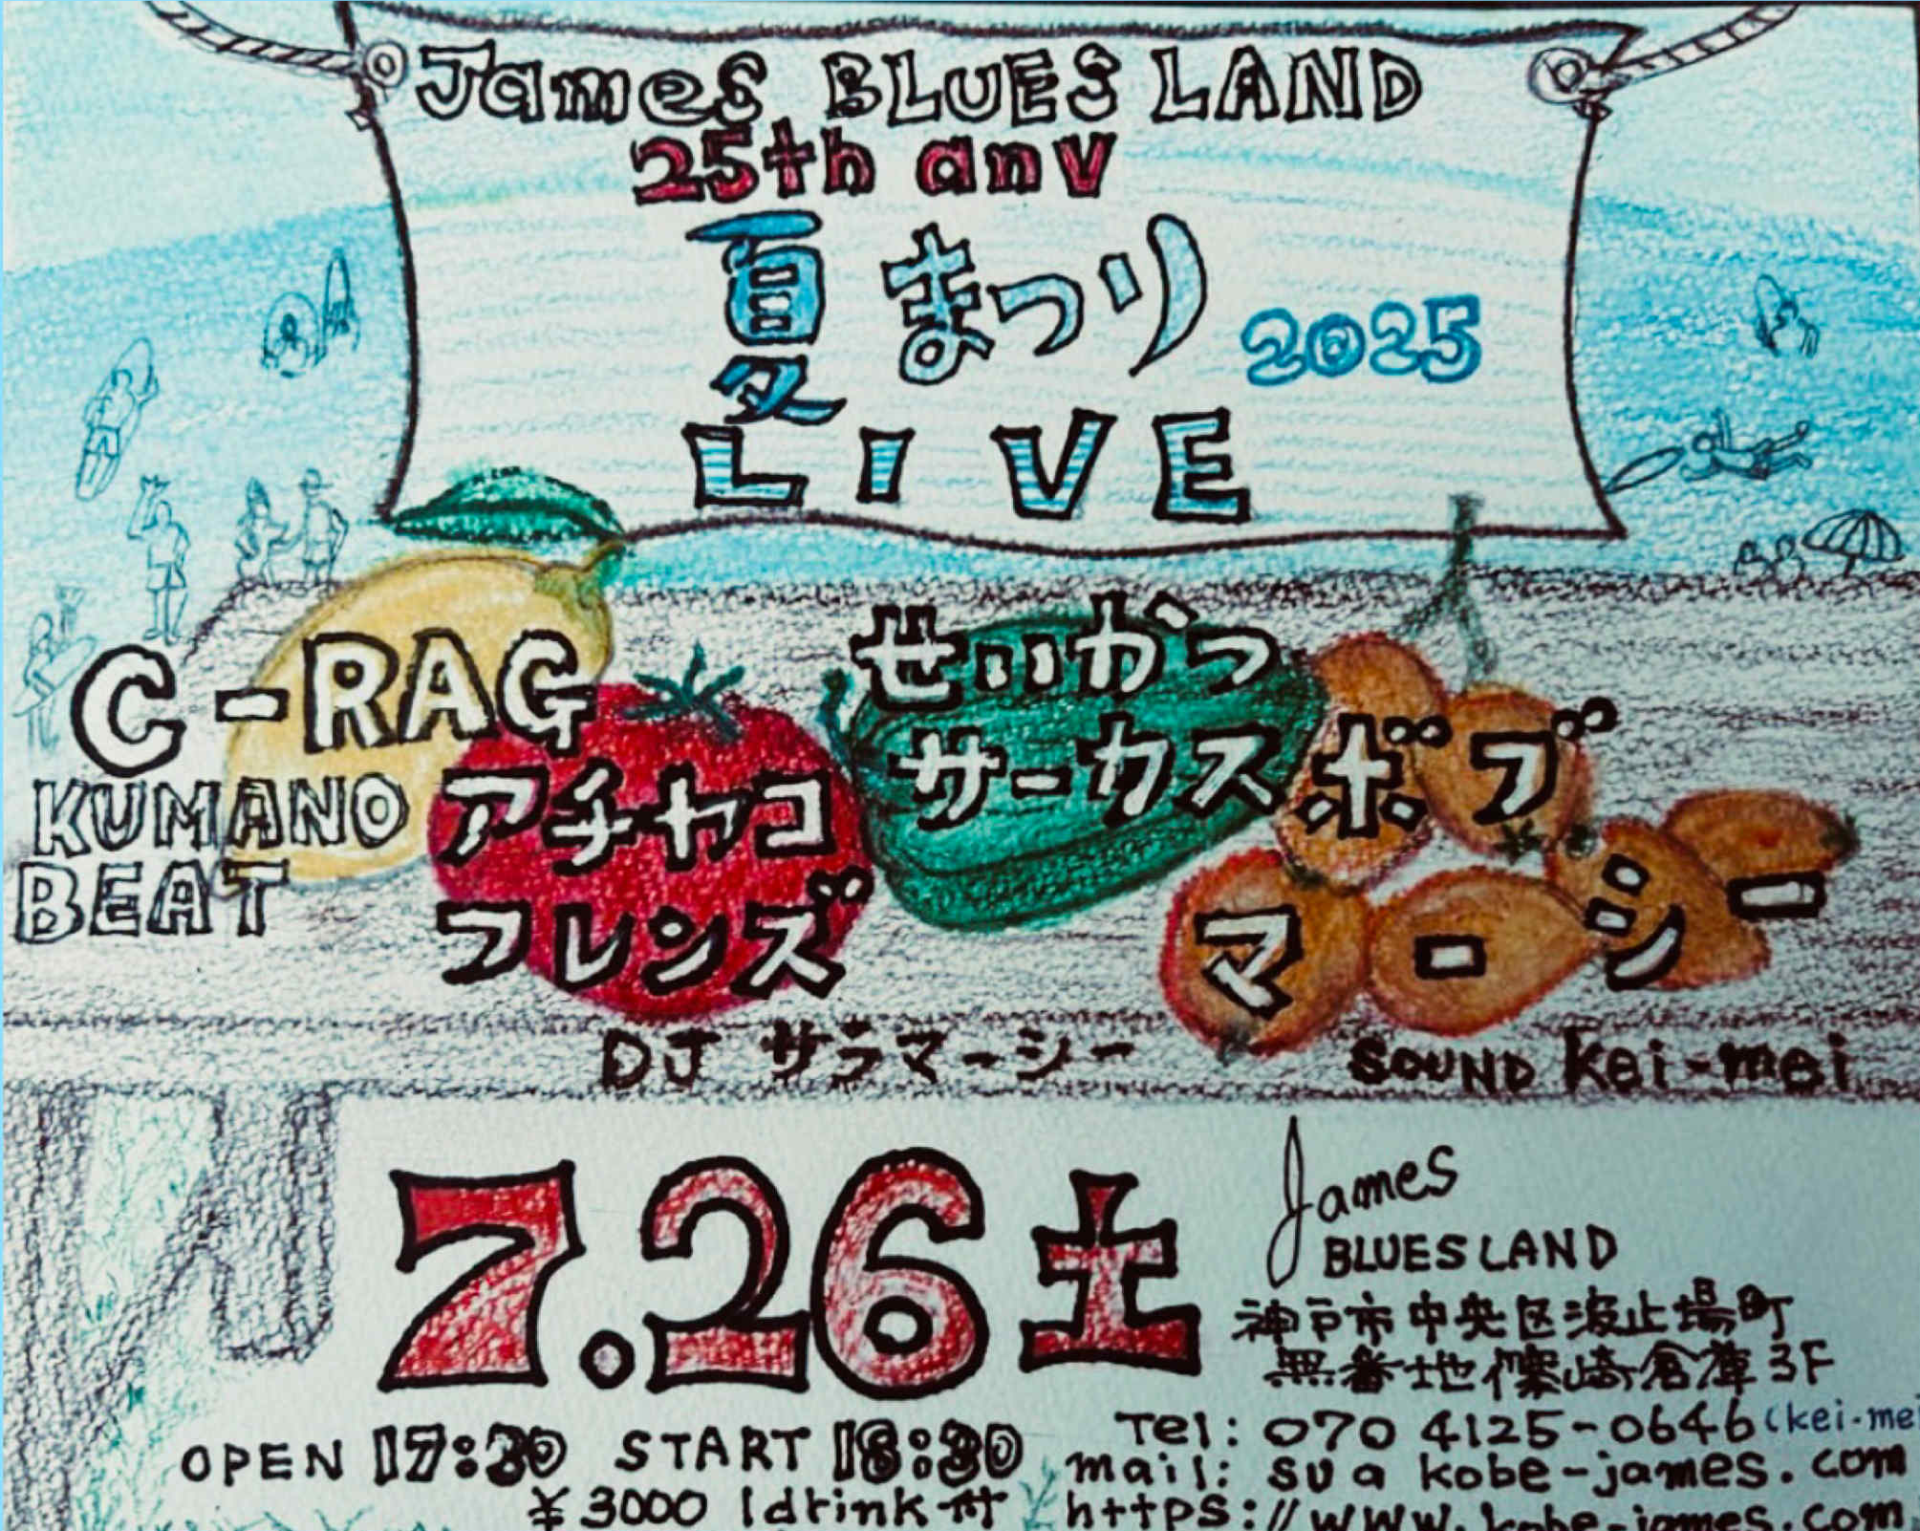 James BLUES LAND
25th anv
夏まつり 2025
LIVE
C-RAG
KUMANO
BEAT
アチャコ
フレンズ
せいかつ
サーカス
ボブ
マーシー
DJ サラマーシー
SOUND Kei-mei
7.26 土
James
BLUES LAND
神戸市中央区波止場町
無番地篠崎倉庫3F
OPEN 17:30 START 18:30
¥3000 1drink付
Tel: 070 4125-0646 (kei-mei
mail: su a kobe-james.com
https://www.kobe-james.com